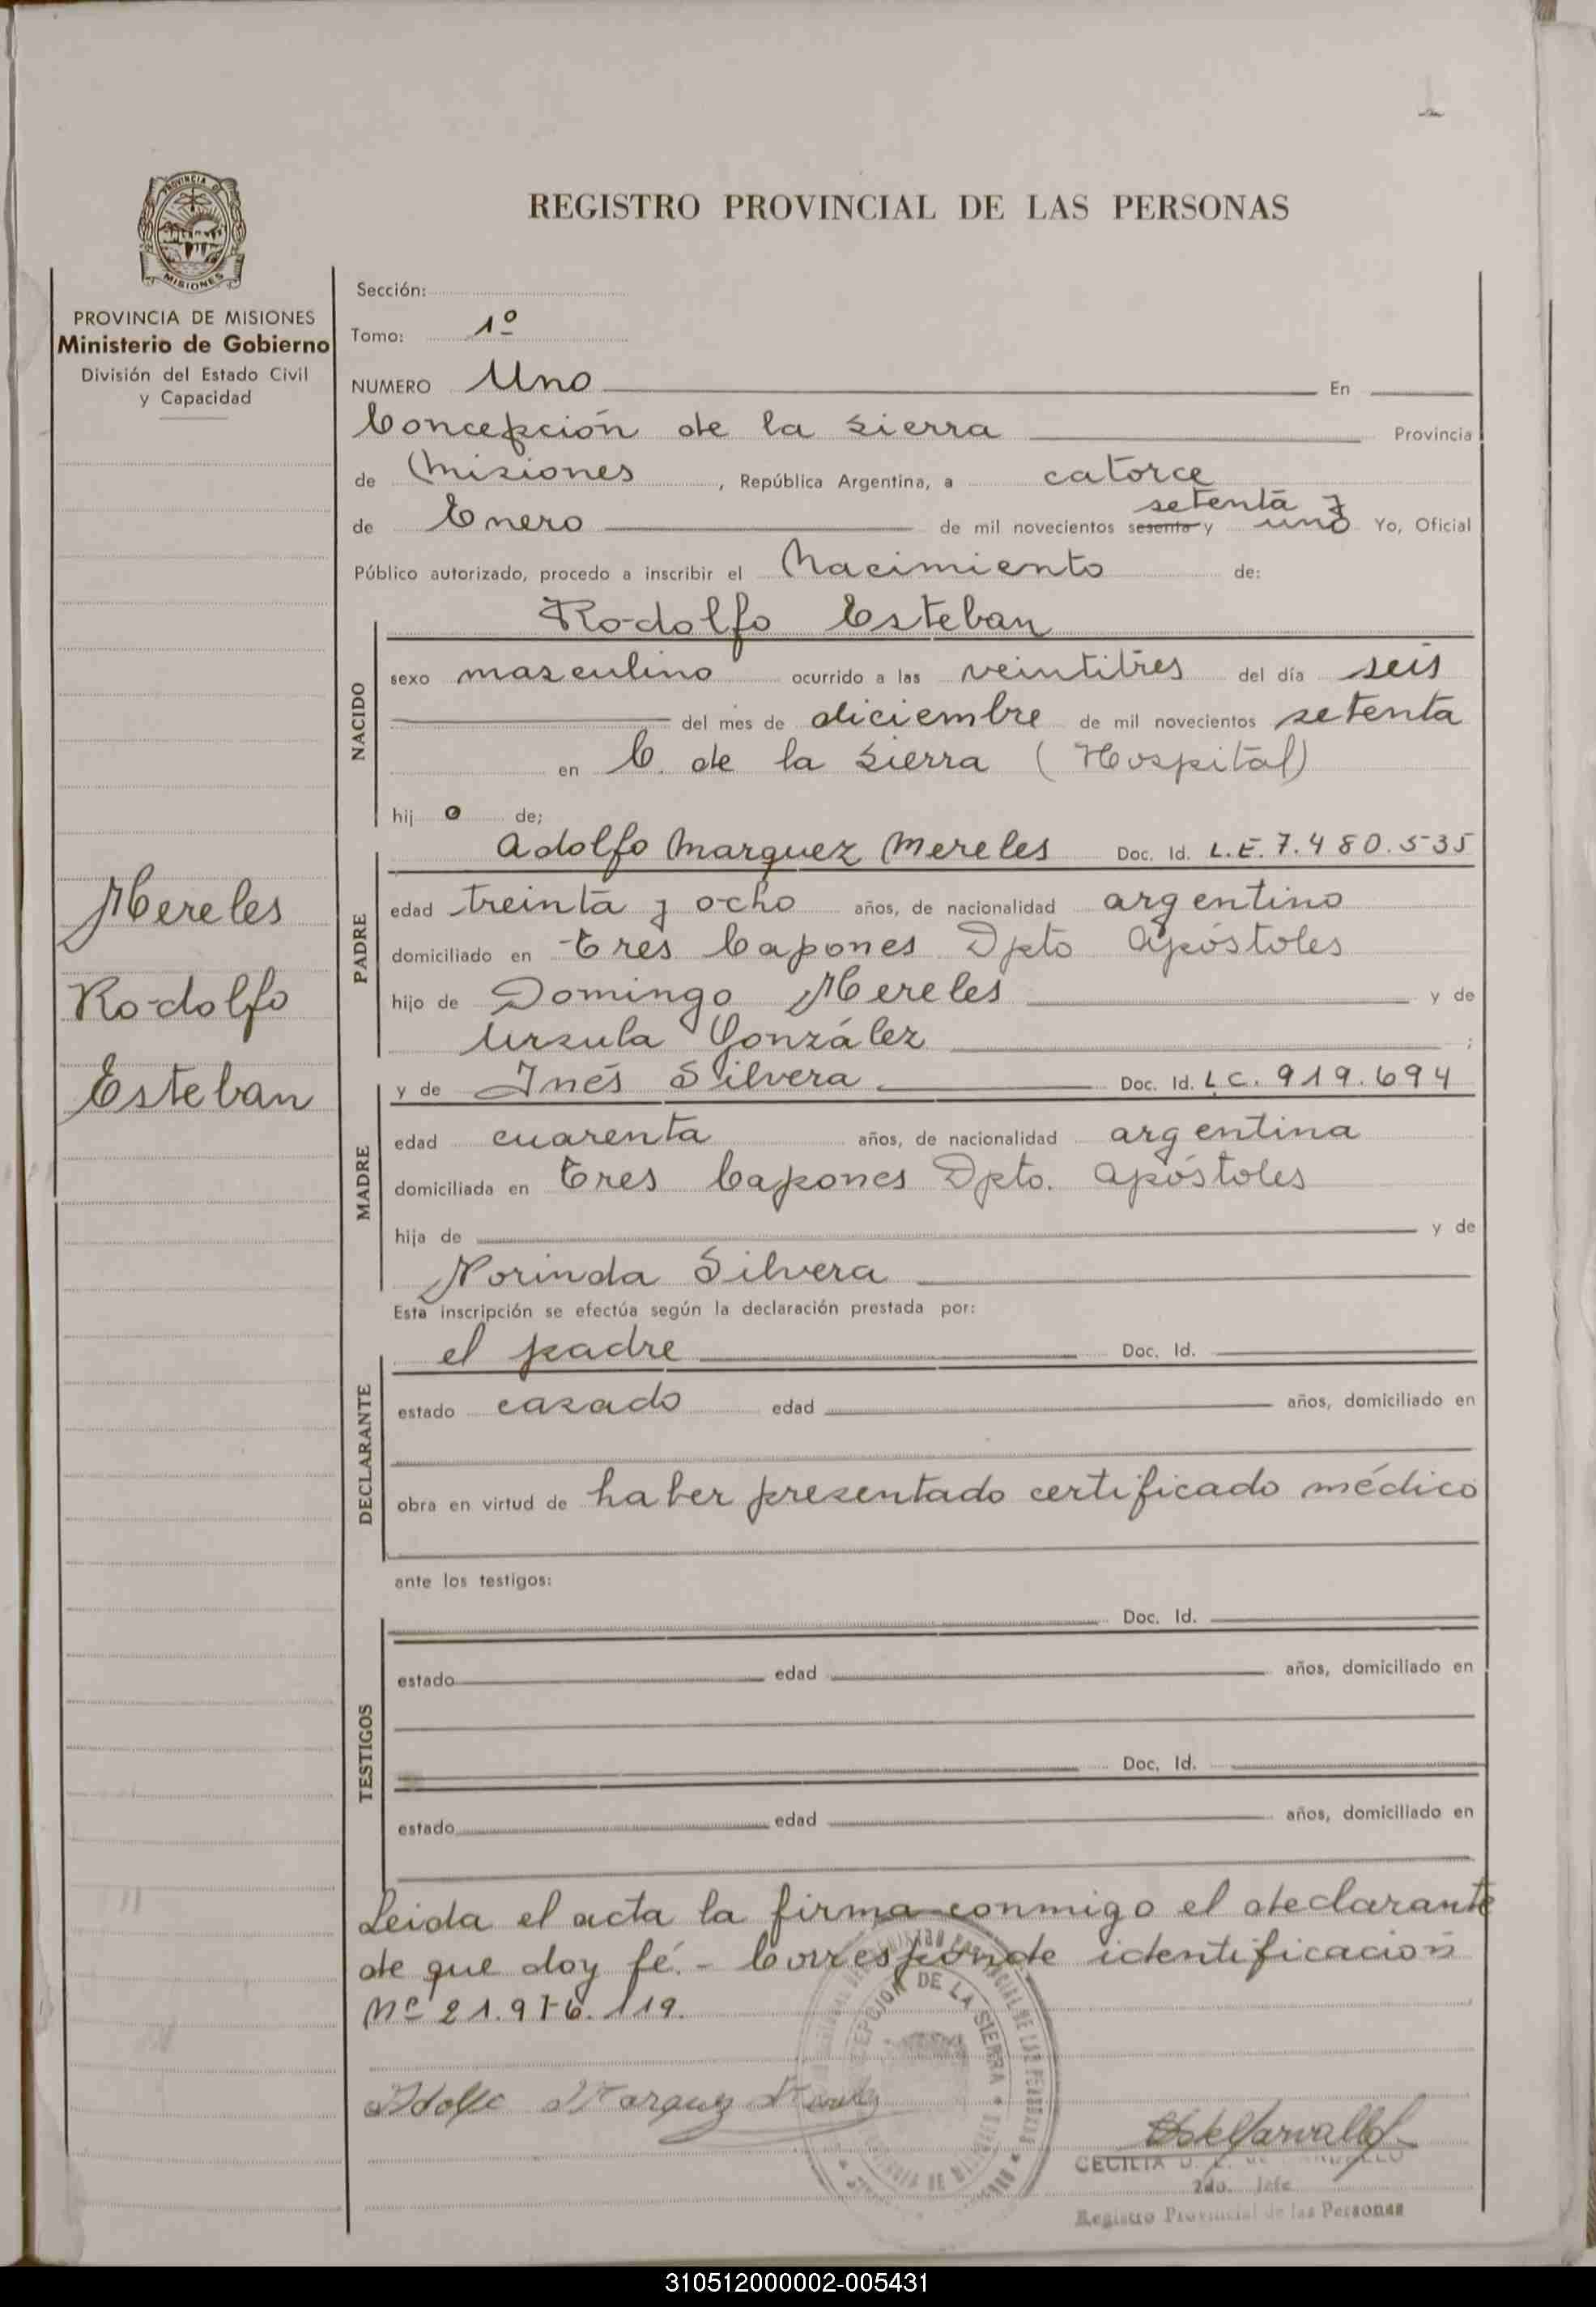 PROVINCIA DE
MISIONES
REGISTRO PROVINCIAL DE LAS PERSONAS
PROVINCIA DE MISIONES
Ministerio de Gobierno
División del Estado Civil
y Capacidad
Mereles
Rodolfo
Esteban
Sección:
Tomo: 1º
NUMERO Uno En
Concepción de la Sierra Provincia
de Misiones, República Argentina, a catorce
setenta y
de Enero de mil novecientos sesenta y uno Yo, Oficial
Público autorizado, procedo a inscribir el Nacimiento de:
NACIDO
Rodolfo Esteban
sexo masculino ocurrido a las veintitres del día seis
del mes de diciembre de mil novecientos setenta
en C. de la Sierra (Hospital)
hij o de;
PADRE
Adolfo Marquez Mereles Doc. Id. L.E. 7.480.535
edad treinta y ocho años, de nacionalidad argentino
domiciliado en Tres Capones Dpto Apóstoles
hijo de Domingo Mereles y de
Ursula González ;
MADRE
y de Inés Silvera Doc. Id. L.C. 919.694
edad cuarenta años, de nacionalidad argentina
domiciliada en Tres Capones Dpto. Apóstoles
hija de y de
Norinda Silvera
Esta inscripción se efectúa según la declaración prestada por:
DECLARANTE
el padre Doc. Id.
estado casado edad años, domiciliado en
obra en virtud de haber presentado certificado médico
ante los testigos:
TESTIGOS
Doc. Id.
estado edad años, domiciliado en
Doc. Id.
estado edad años, domiciliado en
Leida el acta la firma conmigo el declarante
de que doy fé.- Corresponde identificación
Nº 21.976.119.
DE LA SIERRA
Adolfo Marquez
CECILIA
2do. Jefe
Registro Provincial de las Personas
310512000002-005431